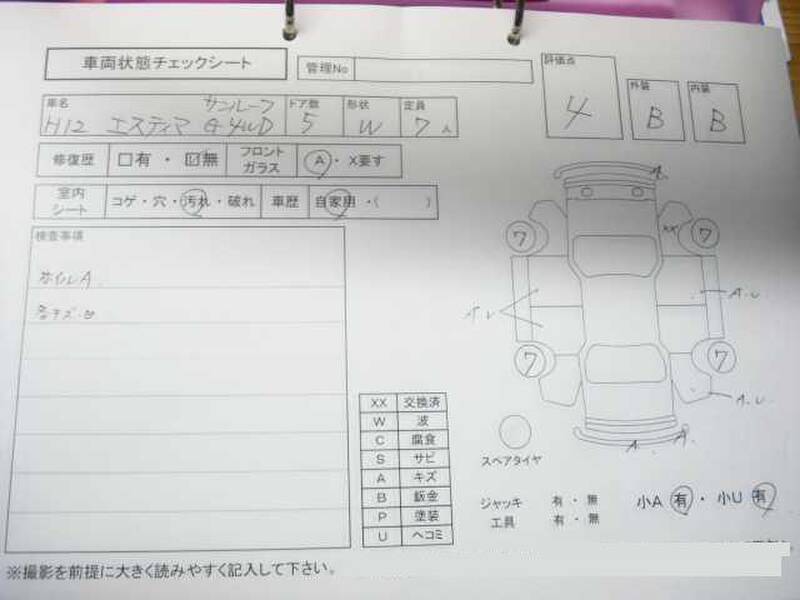 車両状態チェックシート
管理No
評価点
4
外装
B
内装
B
車名
サンルーフ
H12 エスティマ G 4WD
ドア数
5
形状
W
定員
7 人
修復歴 □有 ・ ☑無
フロントガラス
A ・ X要す
室内シート
コゲ・穴・汚れ・破れ
車歴
自家用 ・( )
検査事項
ホイルA
各キズ・凹
A.
XX
7
7
A.U
7
7
A.U.
A. A.
スペアタイヤ
XX 交換済
W 波
C 腐食
S サビ
A キズ
B 鈑金
P 塗装
U ヘコミ
ジャッキ 有 ・ 無
工具 有 ・ 無
小A 有 ・ 小U 有
※撮影を前提に大きく読みやすく記入して下さい。